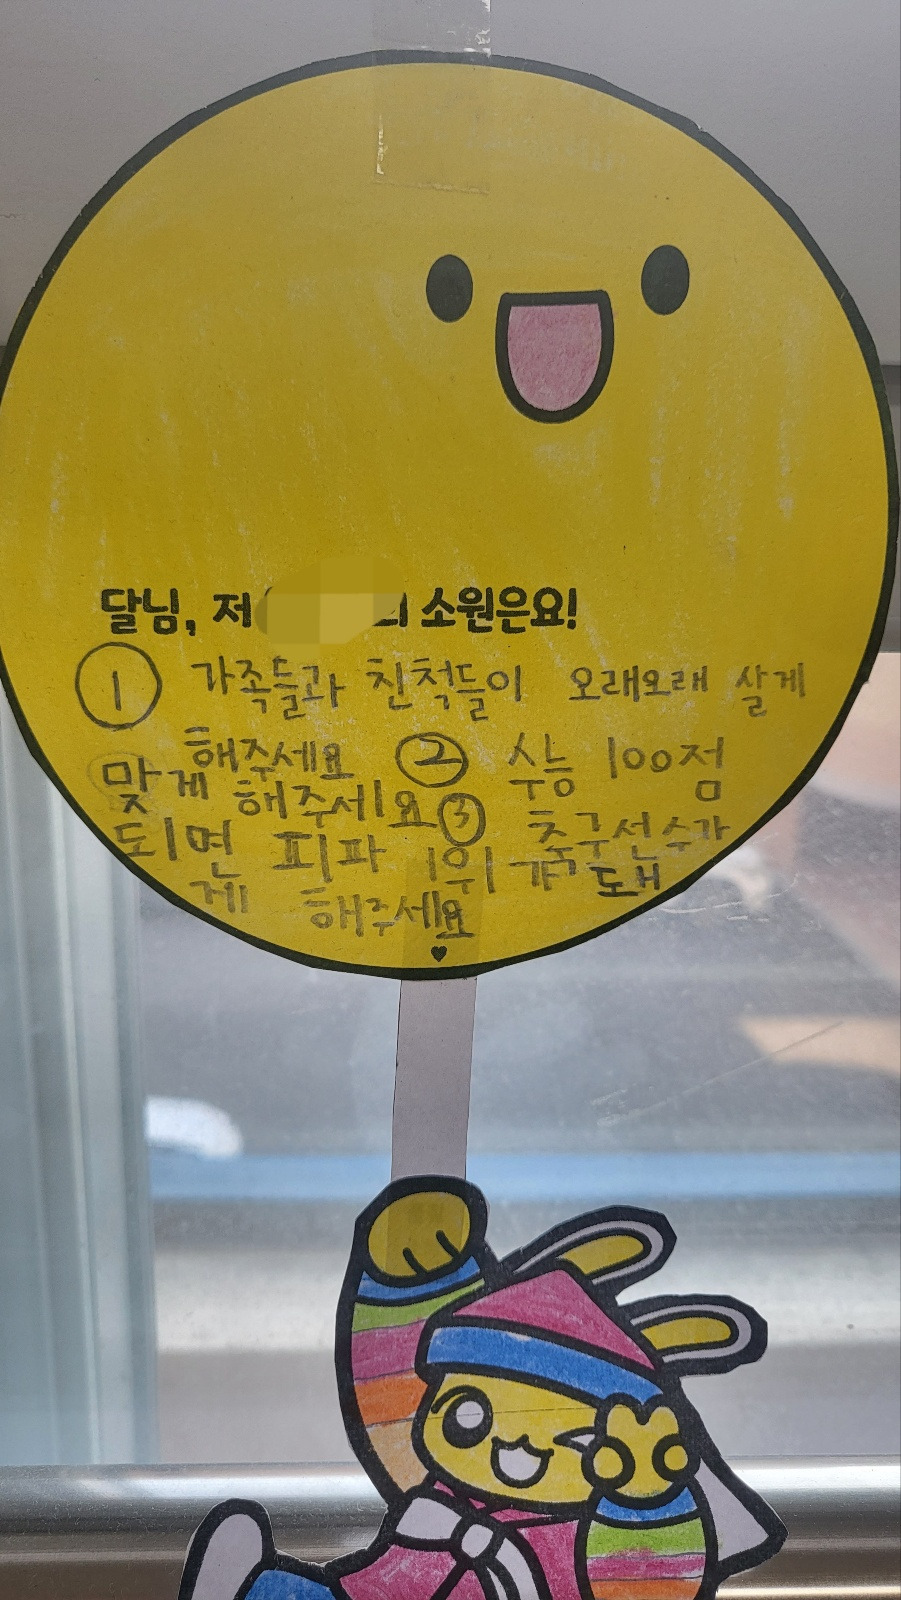 달님, 저 의 소원은요!
① 가족들과 친척들이 오래오래 살게
해주세요 ② 수능 100점
맞게 해주세요 ③ 축구선수가
되면 피파 1위 가 되
게 해주세요